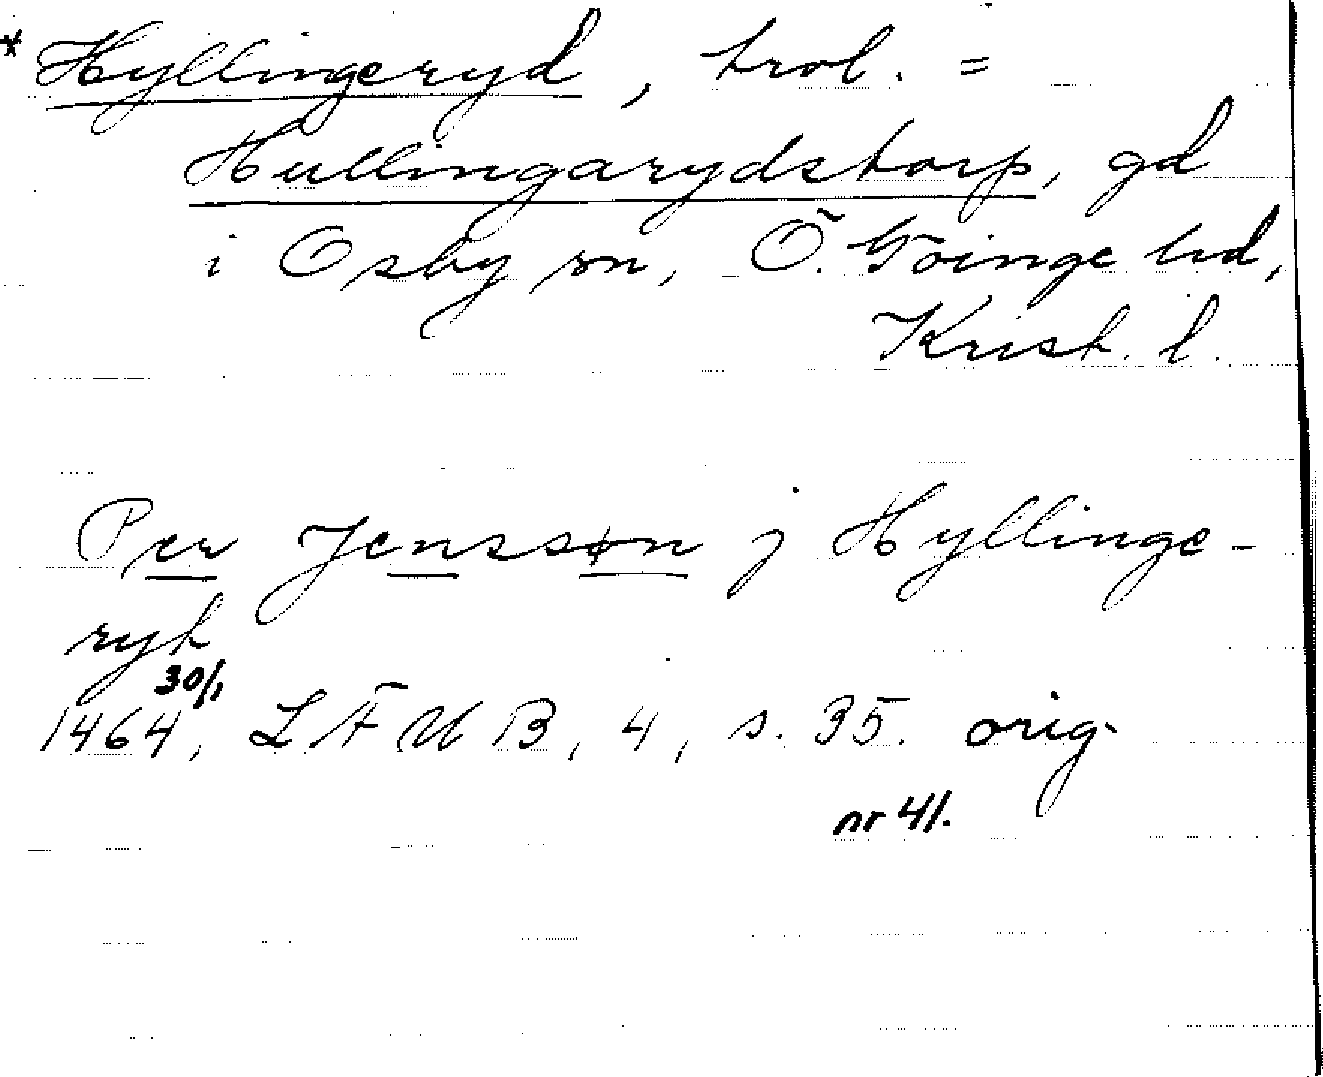 * Hyllingeryd, trol. =
Hullingarydstorp, gd
i Osby sn, Ö. Göinge hd,
Krist. l.
Per Jenssøn j Hyllinge-
ryt
30/1
1464, LÄUB, 4, s. 35. orig.
nr 41.